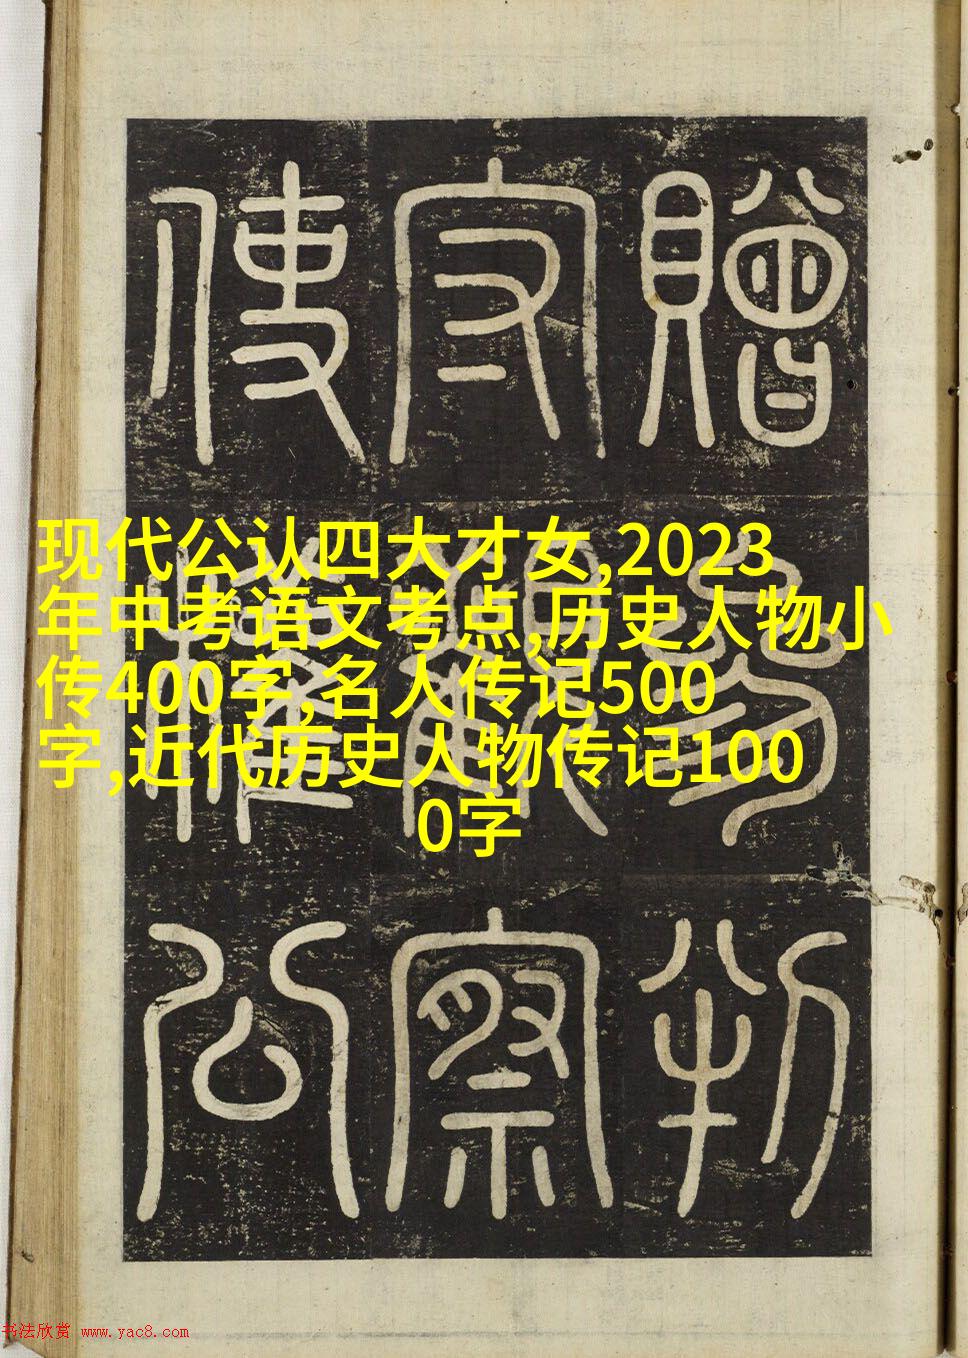 贈 判
觀察
使權公
现代公认四大才女,2023
年中考语文考点,历史人物小
传400字,名人传记500
字,近代历史人物传记100
0字
书法欣赏 www.yac8.com